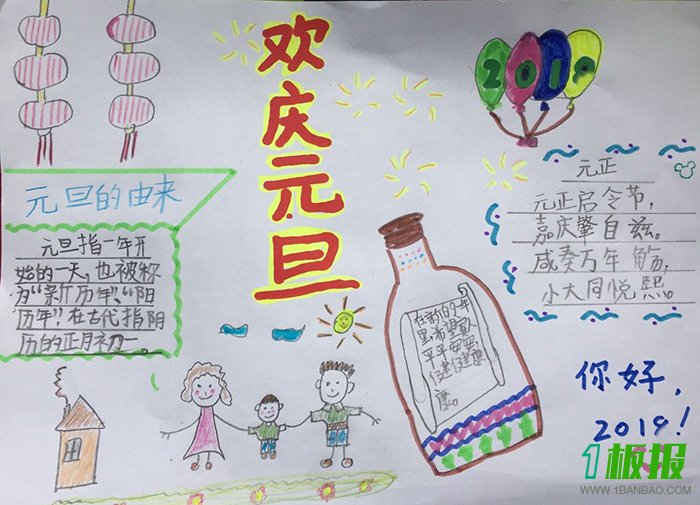 欢庆元旦
2019
元旦的由来
元旦指一年开
始的一天,也被称
为“新历年”、“阳
历年”?在古代指阴
历的正月初一。
元正
元正启令节,
嘉庆肇自兹。
咸奏万年觞,
小大同悦熙。
在新的一年
里,希望
平平安安,
健健康
康。
你好,
2019!
1板报
WWW.1BANBAO.COM